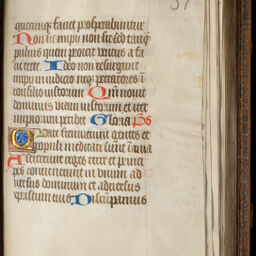 37
quecunque faciet prosperabuntur
Non sic impii non sic sed tanq
pulvis quem proicit ventus a fa
cie terre Ideo non resurgunt
impii in iudicio neq peccatores i
consilio iustorum Qm novit
dominus viam iustorum et iter
impiorum peribit Gloria Ps
Quare fremuerunt gentes et
populi meditati sunt inania
Astiterunt reges terre et princi
pes convenerunt in unum ad
versus dominum et adversus
xpistum eius Disrumpamus